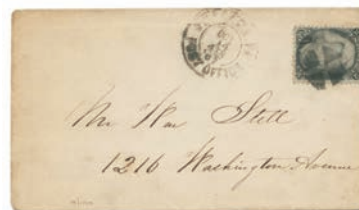 Mr Wm Stell
1216 Washington Avenue